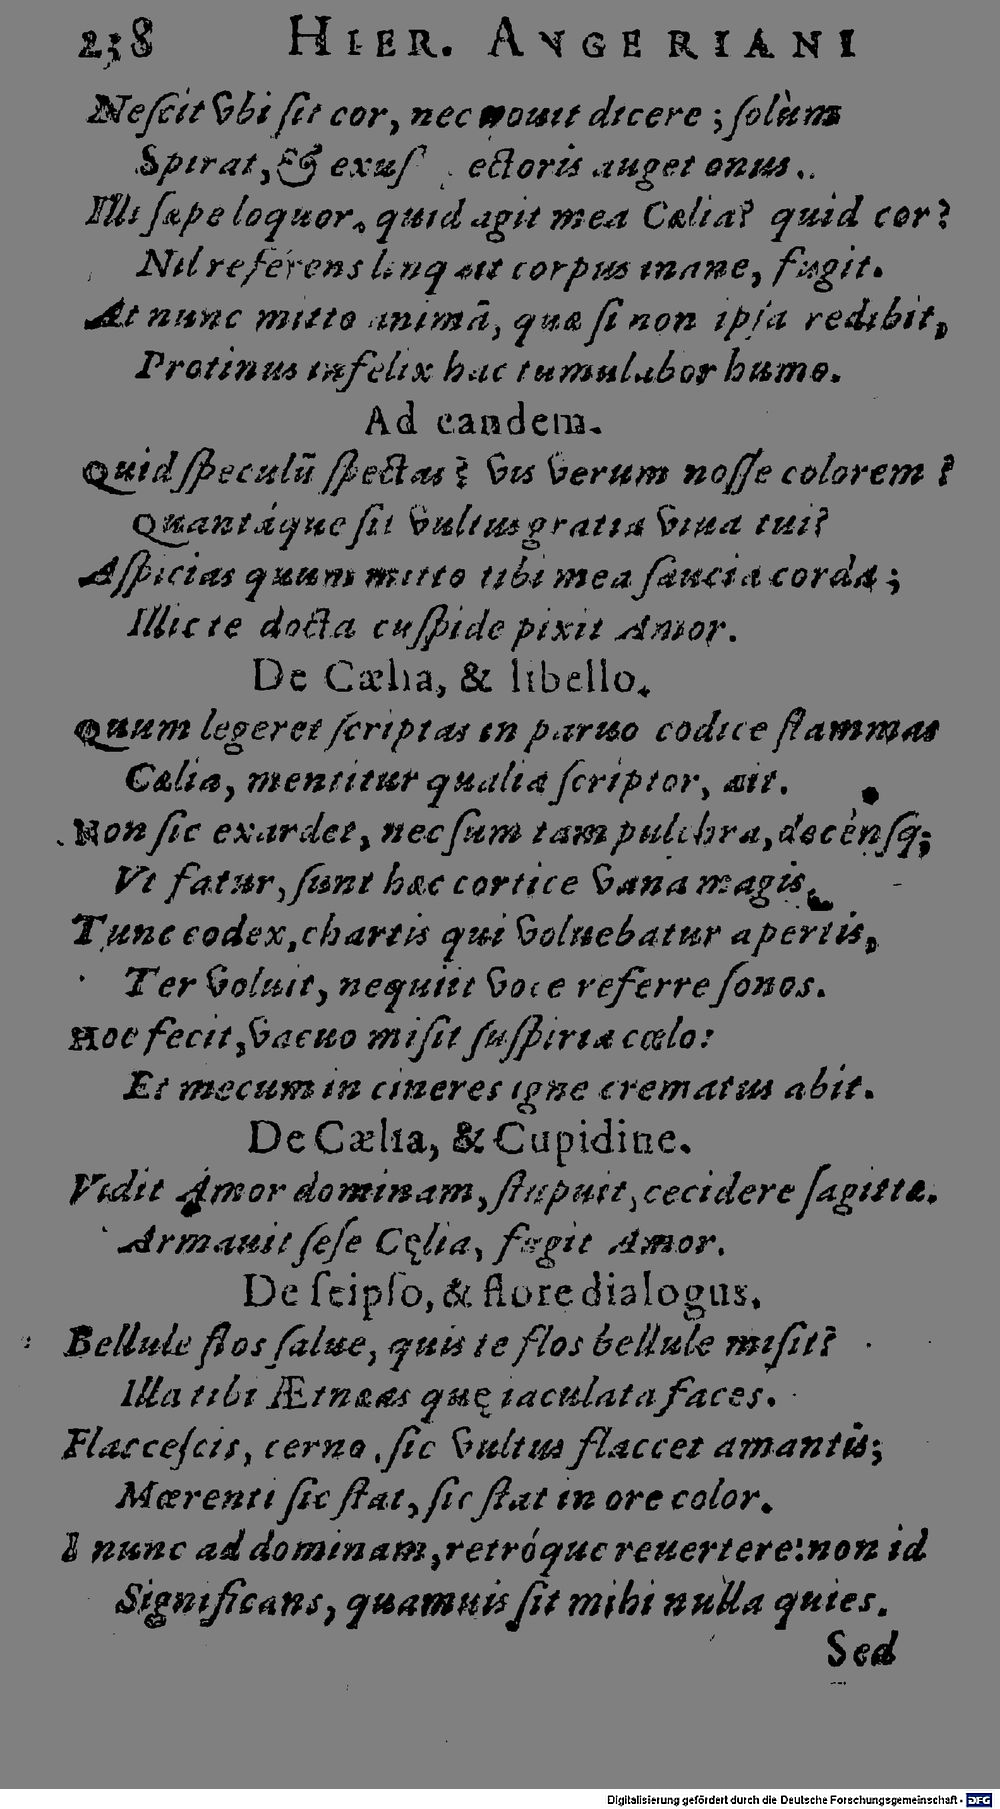 238 HIER. ANGERIANI
Nescit vbi sit cor, nec nouit dicere ; solùm
Spirat, & exus ectoris auget onus.
Illi sæpe loquor, quid agit mea Cælia? quid cor?
Nil reférens linquit corpus inane, fugit.
At nunc mitto animā, quæ si non ipsa redibit,
Protinus infelix hac tumulabor humo.
Ad eandem.
Quid speculū spectas? vis verum nosse colorem?
Quantáque sit vultus gratia viua tui?
Aspicias quum mitto tibi mea saucia corda;
Illic te docta cuspide pixit Amor.
De Cælia, & libello.
Quum legeret scriptas in paruo codice flammas
Cælia, mentitur qualia scriptor, ait.
Non sic exardet, nec sum tam pulchra, decénsq;
Vt fatur, sunt hæc cortice vana magis.
Tunc codex, chartis qui voluebatur apertis,
Ter voluit, nequiit voce referre sonos.
Hoc fecit, vacuo misit suspiria cœlo:
Et mecum in cineres igne crematus abit.
De Cælia, & Cupidine.
Vidit Amor dominam, stupuit, cecidere sagittæ.
Armauit sese Cęlia, fugit Amor.
De seipso, & flore dialogus.
Bellule flos salue, quis te flos bellule misit?
Illa tibi Ætnæas quę iaculata faces.
Flaccescis, cerno, sic vultus flaccet amantis;
Mœrenti sic stat, sic stat in ore color.
I nunc ad dominam, retróque reuertere: non id
Significans, quamuis sit mihi nulla quies.
Sed
Digitalisierung gefördert durch die Deutsche Forschungsgemeinschaft - DFG